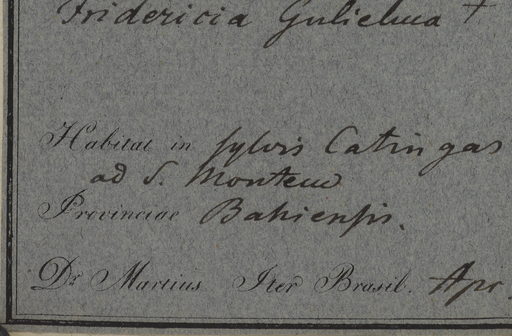 Fridericia Gulielma +
Habitat in sylvis Catingas
ad S. Montem
Provinciae Bahiensis.
Dr. Martius Iter Brasil. Apr